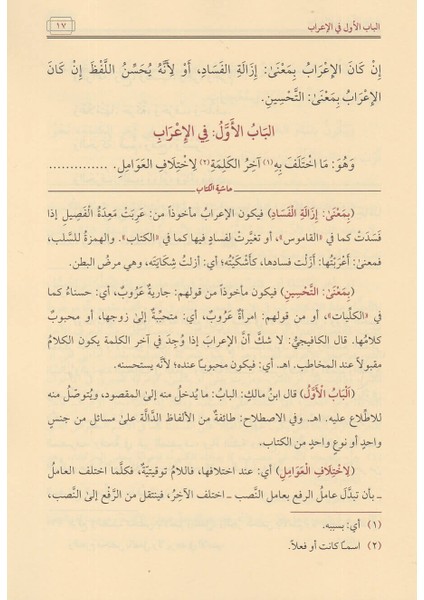 الباب الأول في الإعراب
١٧
إِنْ كَانَ الإِعْرَابُ بِمَعْنَىٰ: إِزَالَةِ الفَسَادِ، أَوْ لِأَنَّهُ يُحَسِّنُ اللَّفْظَ إِنْ كَانَ
الإِعْرَابُ بِمَعْنَىٰ: التَّحْسِينِ.
البَابُ الأَوَّلُ: فِي الإِعْرَابِ
وَهُوَ: مَا اخْتَلَفَ بِهِ(١) آخِرُ الكَلِمَةِ(٢) لِاخْتِلَافِ العَوَامِلِ. ..............
حاشية الكتاب
(بِمَعْنَىٰ: إِزَالَةِ الْفَسَادِ) فيكون الإعرابُ مأخوذاً من: عَرِبَتْ مَعِدَةُ الفَصِيلِ إذا
فَسَدَتْ كما في «القاموس»، أو تغيَّرتْ لفسادٍ فيها كما في «الكتاب». والهمزةُ للسَّلب،
فمعنىٰ: أَعْرَبْتُها: أَزَلْتُ فسادها، كأَشْكَيْتُه؛ أي: أزلتُ شِكَايَتَه، وهي مرضُ البطن.
(بِمَعْنَىٰ: التَّحْسِينِ) فيكون مأخوذاً من قولهم: جاريةٌ عَرُوبٌ، أي: حسناءُ كما
في «الكلِّيات»، أو من قولهم: امرأةٌ عَرُوبٌ، أي: متحبِّبةٌ إلىٰ زوجها، أو محبوبٌ
كلامُها. قال الكافيجيُّ: لا شكَّ أنَّ الإعرابَ إذا وُجِدَ في آخر الكلمة يكون الكلامُ
مقبولاً عند المخاطب. اهـ. أي: يكون محبوبًا عنده؛ لأنَّه يستحسنه.
(اَلْبَابُ الْأَوَّلُ) قال ابنُ مالكٍ: البابُ: ما يُدخَلُ منه إلىٰ المقصود، ويُتوصَّلُ منه
للاطِّلاع عليه. اهـ. وفي الاصطلاح: طائفةٌ من الألفاظ الدَّالَّةِ علىٰ مسائل من جنسٍ
واحدٍ أو نوعٍ واحدٍ من الكتاب.
(لِاخْتِلَافِ الْعَوَامِلِ) أي: عند اختلافها، فاللامُ توقيتيَّةٌ، فكلَّما اختلف العاملُ
ـ بأن تبدَّل عاملُ الرفع بعامل النَّصب ـ اختلف الآخِرُ، فينتقل من الرَّفْع إلىٰ النَّصب،
(١) أي: بسببه.
(٢) اسمـًا كانت أو فعلاً.